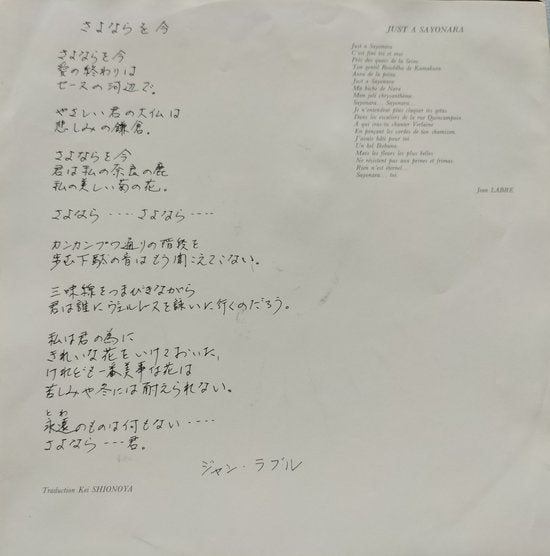 さよならを今
さよならを今
愛の終わりは
セーヌの河辺で。
やさしい君の大仏は
悲しみの鎌倉。
さよならを今
君は私の奈良の鹿
私の美しい菊の花。
さよなら ---- さよなら ----
カンカンプワ通りの階段を
歩む下駄の音はもう聞こえてこない。
三味線をつまびきながら
君は誰にヴェルレーヌを詠いに行くのだろう。
私は君の為に
きれいな花をいけておいた,
けれども一番美事な花は
苦しみや冬には耐えられない。
とわ
永遠のものは何もない ----
さよなら --- 君。
ジャン・ラブル
Traduction Kei SHIONOYA
JUST A SAYONARA
Just a Sayonara
C'est fini toi et moi
Près des quais de la Seine
Ton gentil Bouddha de Kamakura
Aura de la peine
Just a Sayonara
Ma biche de Nara
Mon joli chrysanthème
Sayonara... Sayonara...
Je n'entendrai plus claquer tes getas
Dans les escaliers de la rue Quincampoix
A qui iras-tu chanter Verlaine
En pinçant les cordes de ton chamizen
J'avais bâti pour toi
Un bel Ikebana
Mais les fleurs les plus belles
Ne résistent pas aux peines et frimas
Rien n'est éternel...
Sayonara... toi
Jean LABRE